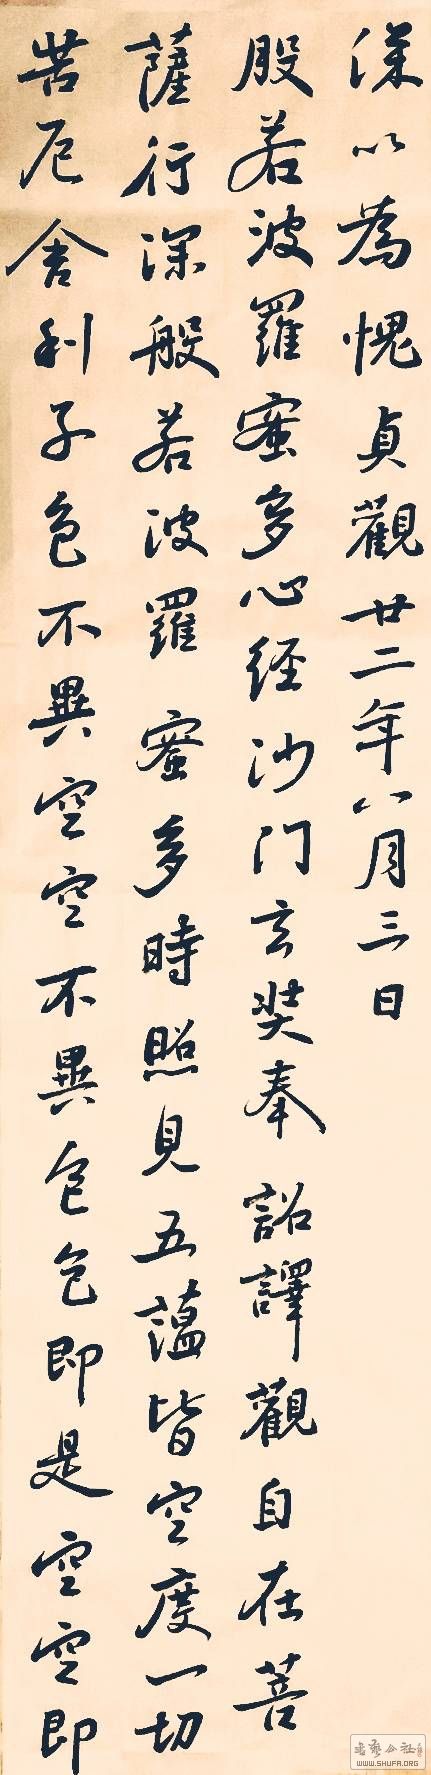 深以為愧貞觀廿二年八月三日
般若波羅蜜多心經沙门玄奘奉詔譯觀自在菩
薩行深般若波羅蜜多時照見五蕴皆空度一切
苦厄舍利子色不異空空不異色色即是空空即
WWW.SHUFA.ORG